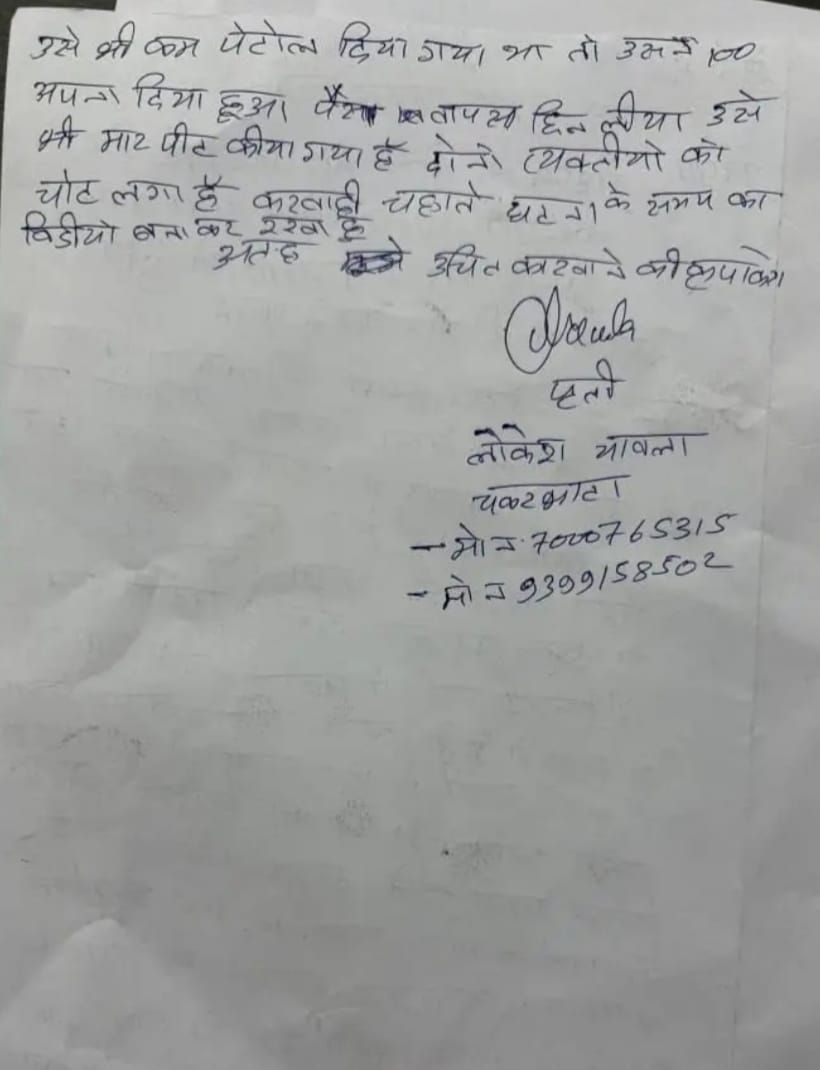 उसे भी कम पेटोल दिया गया था तो उसने 100
अपना दिया हुआ पैसा वापस छिन लीया उसे
भी मार पीट कीया गया है दोनो व्यक्तीयो को
चोट लगा है करवाही चहाते घटना के समय का
विडीयो बना कर रखा हु
अतह उचित कारवाने की कृपा करे
प्रती
लोकेश यावला
चकरभाटा
- मो न. 7000765315
- मो न 9399158502